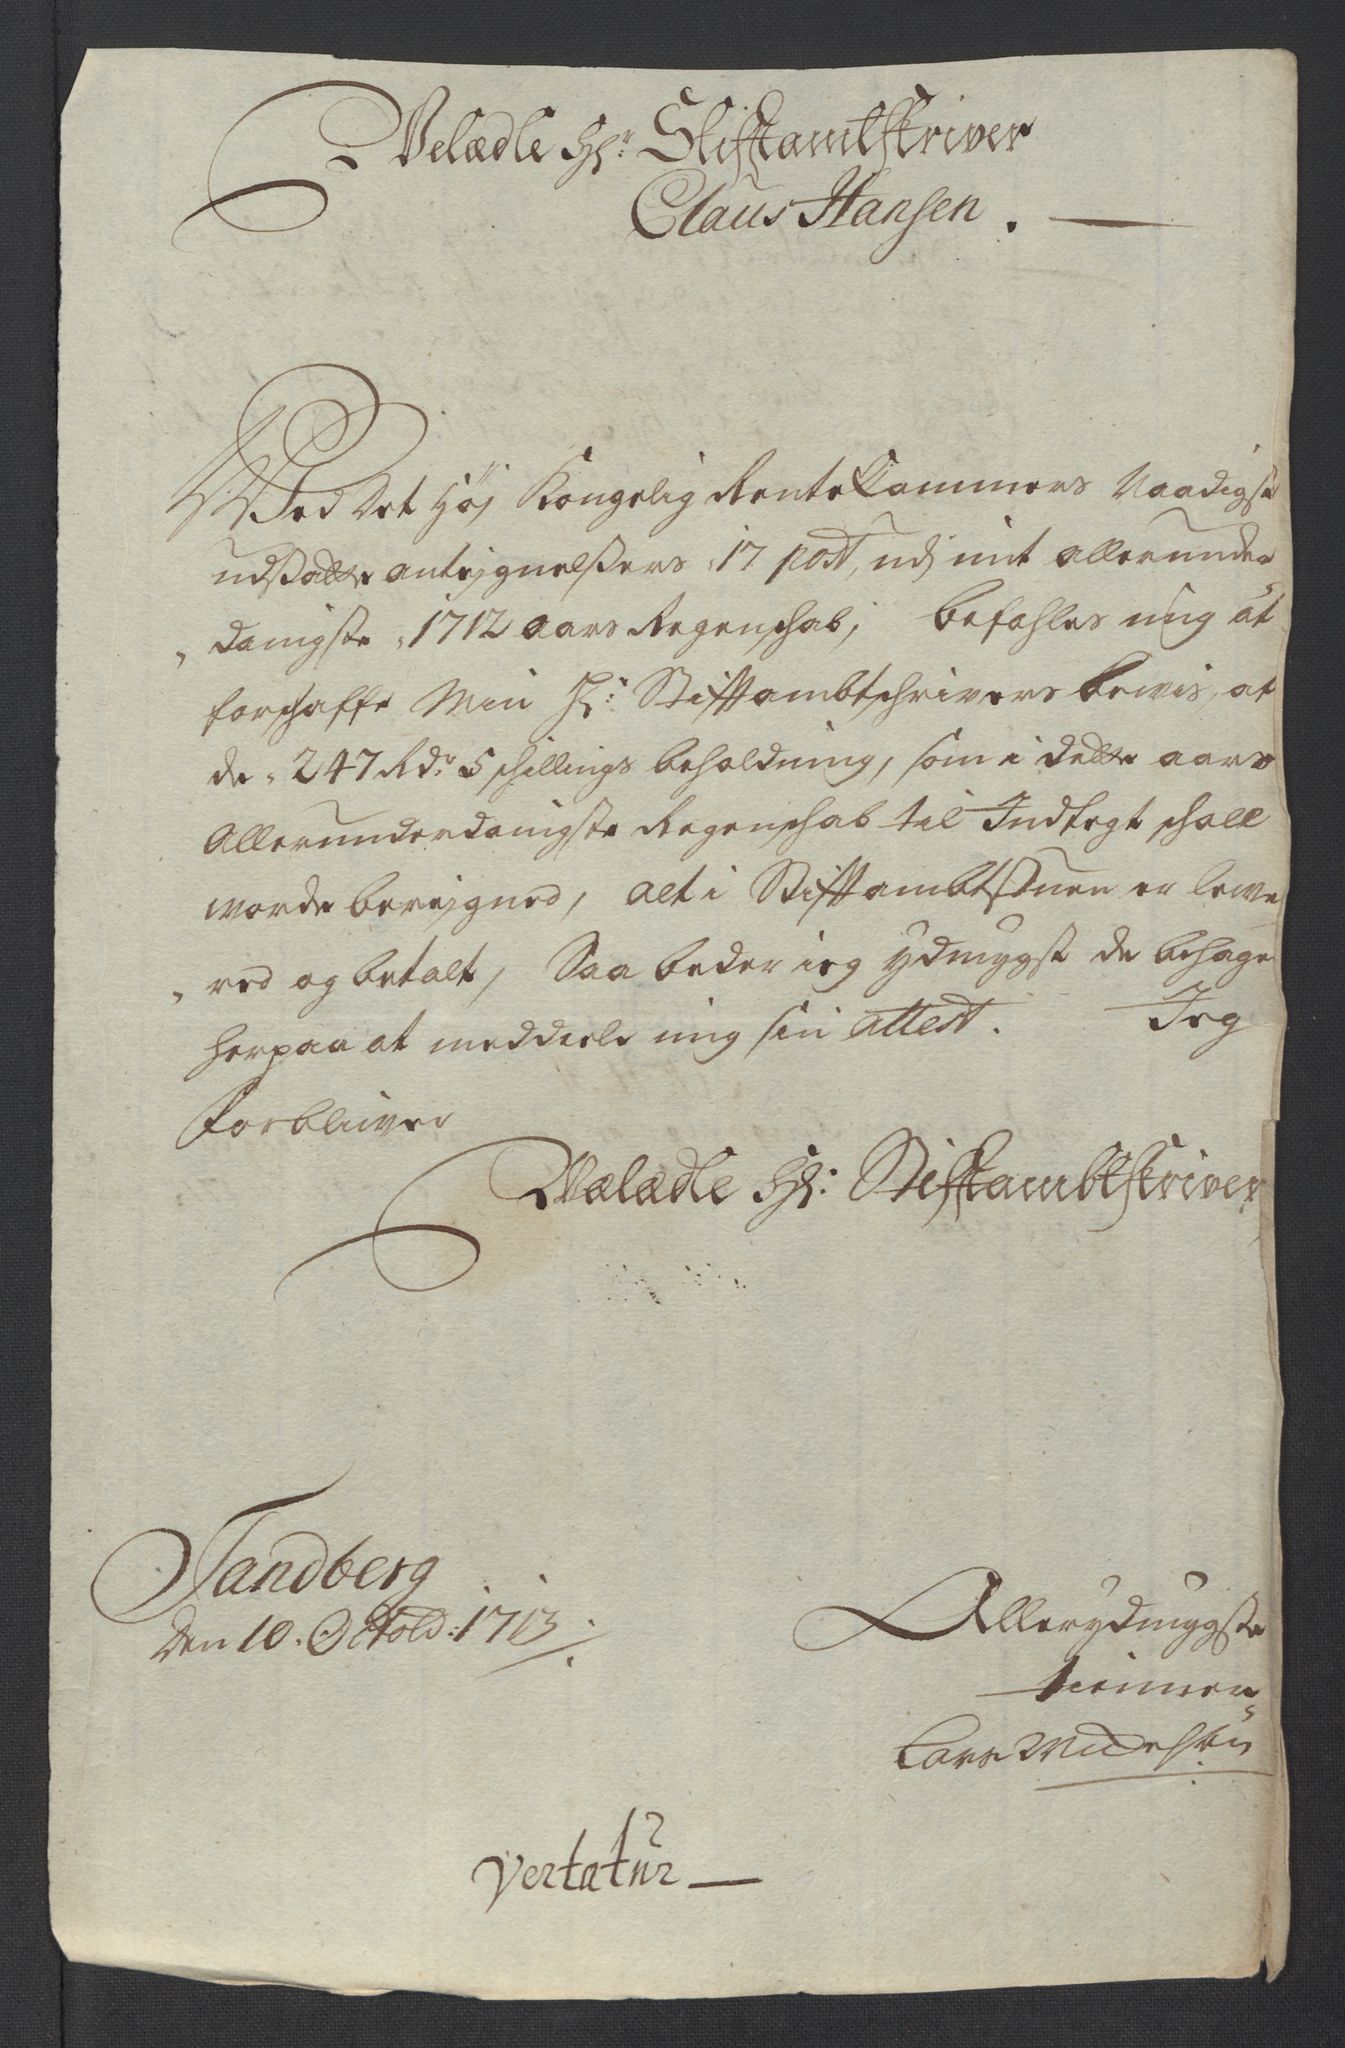 Velædle Hr: Stifftamtskriver
Claus Hansen.
Ved Det Høj Kongelig RenteCammers Naadigst
udstædte antejgnelsers 17 post, udj mit allerunder
danigste 1712 aars Regenschab, befahles mig at
forschaffe Min Hr: Stifftambtschrivers bewis, at
de 247 Rdr 5 schillings beholdning, som i dette aars
Allerunderdanigste Regenschab til Indtegt schall
worde berejgned, alt i Stifftambtstuen er lewe
red og betalt, Saa beder ieg ydmygst de behage
herpaa at meddiele mig sin attest. Jeg
Forbliver
Vælædle Hr: Stifftambtskriver
Tandberg
den 10. Octobr: 1713
Allerydmygste
tienner
Lars
vertatur